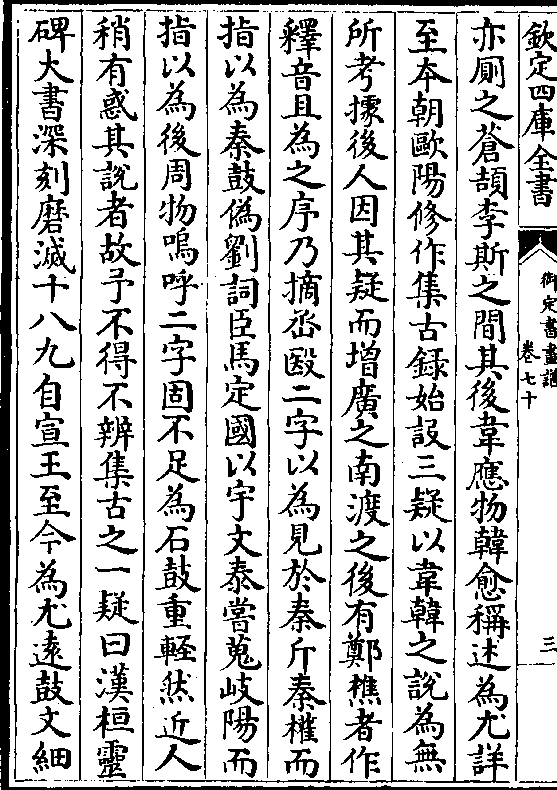 欽定四庫全書
御定書畫譜
卷七十
三
亦厠之蒼頡李斯之間其後韋應物韓愈稱述為尤詳
至本朝歐陽修作集古録始設三疑以韋韓之說為無
所考據後人因其疑而增廣之南渡之後有鄭樵者作
釋音且為之序乃摘丞殹二字以為見於秦斤秦權而
指以為秦鼓偽劉詞臣馬定國以宇文泰嘗蒐岐陽而
指以為後周物嗚呼二字固不足為石鼓重輕然近人
稍有惑其說者故予不得不辨集古之一疑曰漢桓靈
碑大書深刻磨滅十八九自宣王至今為尤遠鼓文細